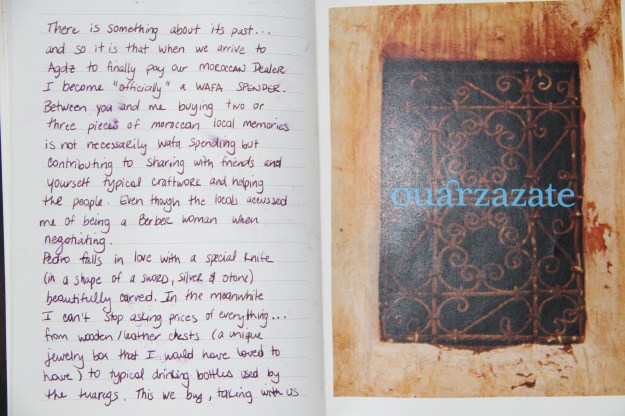 There is something about its past...
and so it is that when we arrive to
Agdz to finally pay our MOROCCAN DEALER
I become "officially" a WAFA SPENDER.
Between you and me buying two or
three pieces of moroccan local memories
is not necessarily wafa spending but
contributing to sharing with friends and
yourself typical craftwork and helping
the people. Even though the locals acussed
me of being a Berber woman when
negotiating.
Pedro falls in love with a special knife
(in a shape of a sword, silver & stone)
beautifully carved. In the meanwhile
I can't stop asking prices of everything...
from wooden/leather chests (a unique
jewelry box that I would have loved to
have) to typical drinking bottles used by
the tuaregs. This we buy, taking with us
ouarzazate